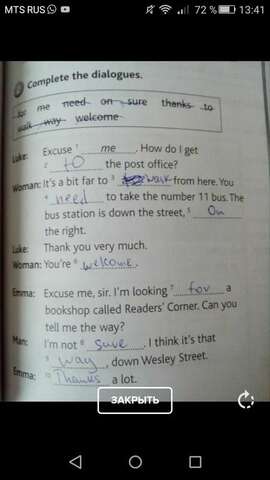 MTS RUS 72 % 13:41
Complete the dialogues.
for me need on sure thanks to
walk way welcome
Luke: Excuse 1 me . How do I get
2 to the post office?
Woman: It's a bit far to 3 walk from here. You
4 need to take the number 11 bus. The
bus station is down the street, 5 On
the right.
Luke: Thank you very much.
Woman: You're 6 welcome.
Emma: Excuse me, sir. I'm looking 7 for a
bookshop called Readers' Corner. Can you
tell me the way?
Man: I'm not 8 sure . I think it's that
9 way , down Wesley Street.
Emma: 10 Thanks a lot.
ЗАКРЫТЬ